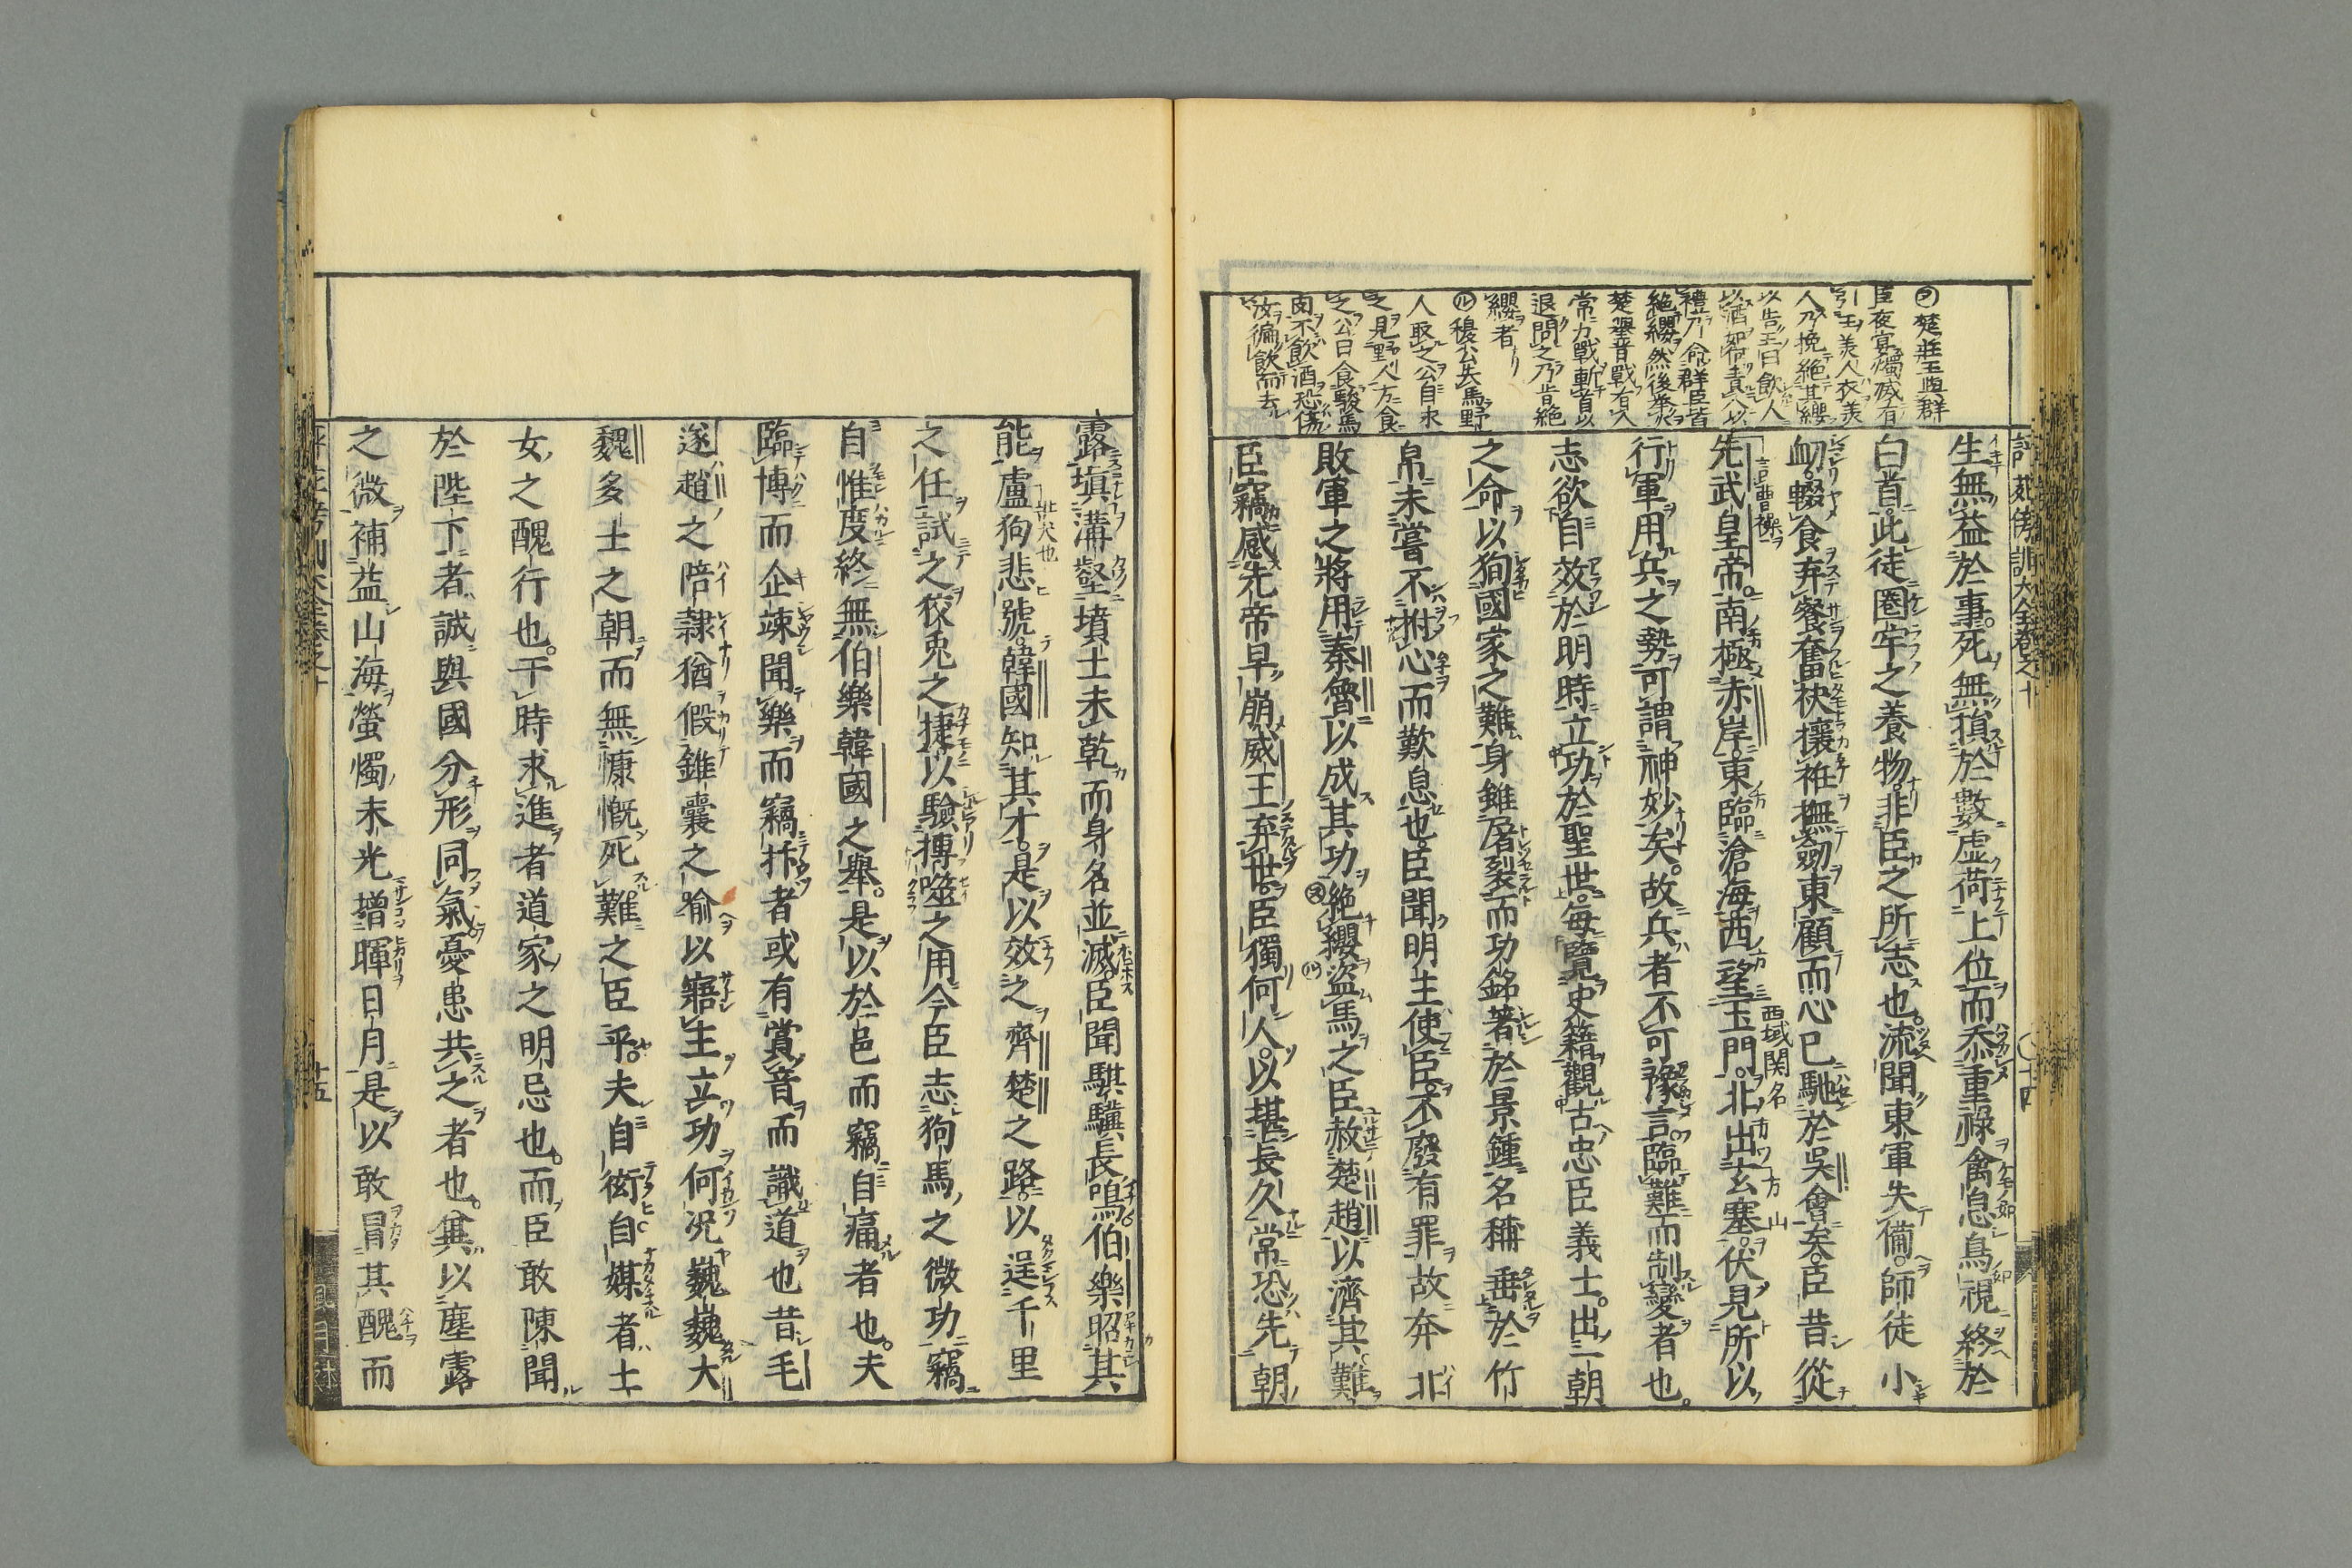 ㋾楚莊王與群
臣夜宴燭滅有
引王美人衣美
人乃挽絶其纓
以告王曰飲人
以酒如何責人以
禮乃命群臣皆
絶纓然後舉火
楚與晉戰有人
常力戰斬首以
退問之乃昔絶
纓者
㋸穆公失馬野
人取之公自求
之見野人方食
之公曰食駿馬
肉不飲酒恐傷
汝徧飲而去
生無益於事死無損於數虚荷上位而忝重祿禽息鳥視終於
白首此徒圈牢之養物非臣之所志也流聞東軍失備師徒小
衂輟食弃餐奮袂攘袵撫劔東顧而心已馳於吳會矣臣昔從
先武皇帝南極赤岸東臨滄海西望玉門北出玄塞伏見所以
言曹操
西域関名
方山
行軍用兵之勢可謂神妙矣故兵者不可豫言臨難而制變者也
志欲自效於明時立功於聖世每覽史籍觀古忠臣義士出一朝
之命以狥國家之難身雖屠裂而功銘著於景鍾名稱垂於竹
帛未嘗不拊心而歎息也臣聞明主使臣不廢有罪故奔北
敗軍之將用秦魯以成其功㋾絶纓㋸盜馬之臣赦楚趙以濟其難
臣竊感先帝早崩威王弃世臣獨何人以堪長久常恐先朝
露塡溝壑墳土未乾而身名並滅臣聞騏驥長鳴伯樂昭其
能盧狗悲號韓國知其才是以效之齊楚之路以逞千里
壯犬也
之任試之狡兎之捷以驗搏噬之用今臣志狗馬之微功竊
自惟度終無伯樂韓國之舉是以於邑而竊自痛者也夫
臨博而企竦聞樂而竊抃者或有賞音而識道也昔毛
遂趙之陪隷猶假錐囊之喻以寤主立功何况巍巍大
魏多士之朝而無慷慨死難之臣乎夫自衒自媒者士
女之醜行也干時求進者道家之明忌也而臣敢陳聞
於陛下者誠與國分形同氣憂患共之者也兾以塵露
之微補益山海螢燭末光增暉日月是以敢冒其醜而